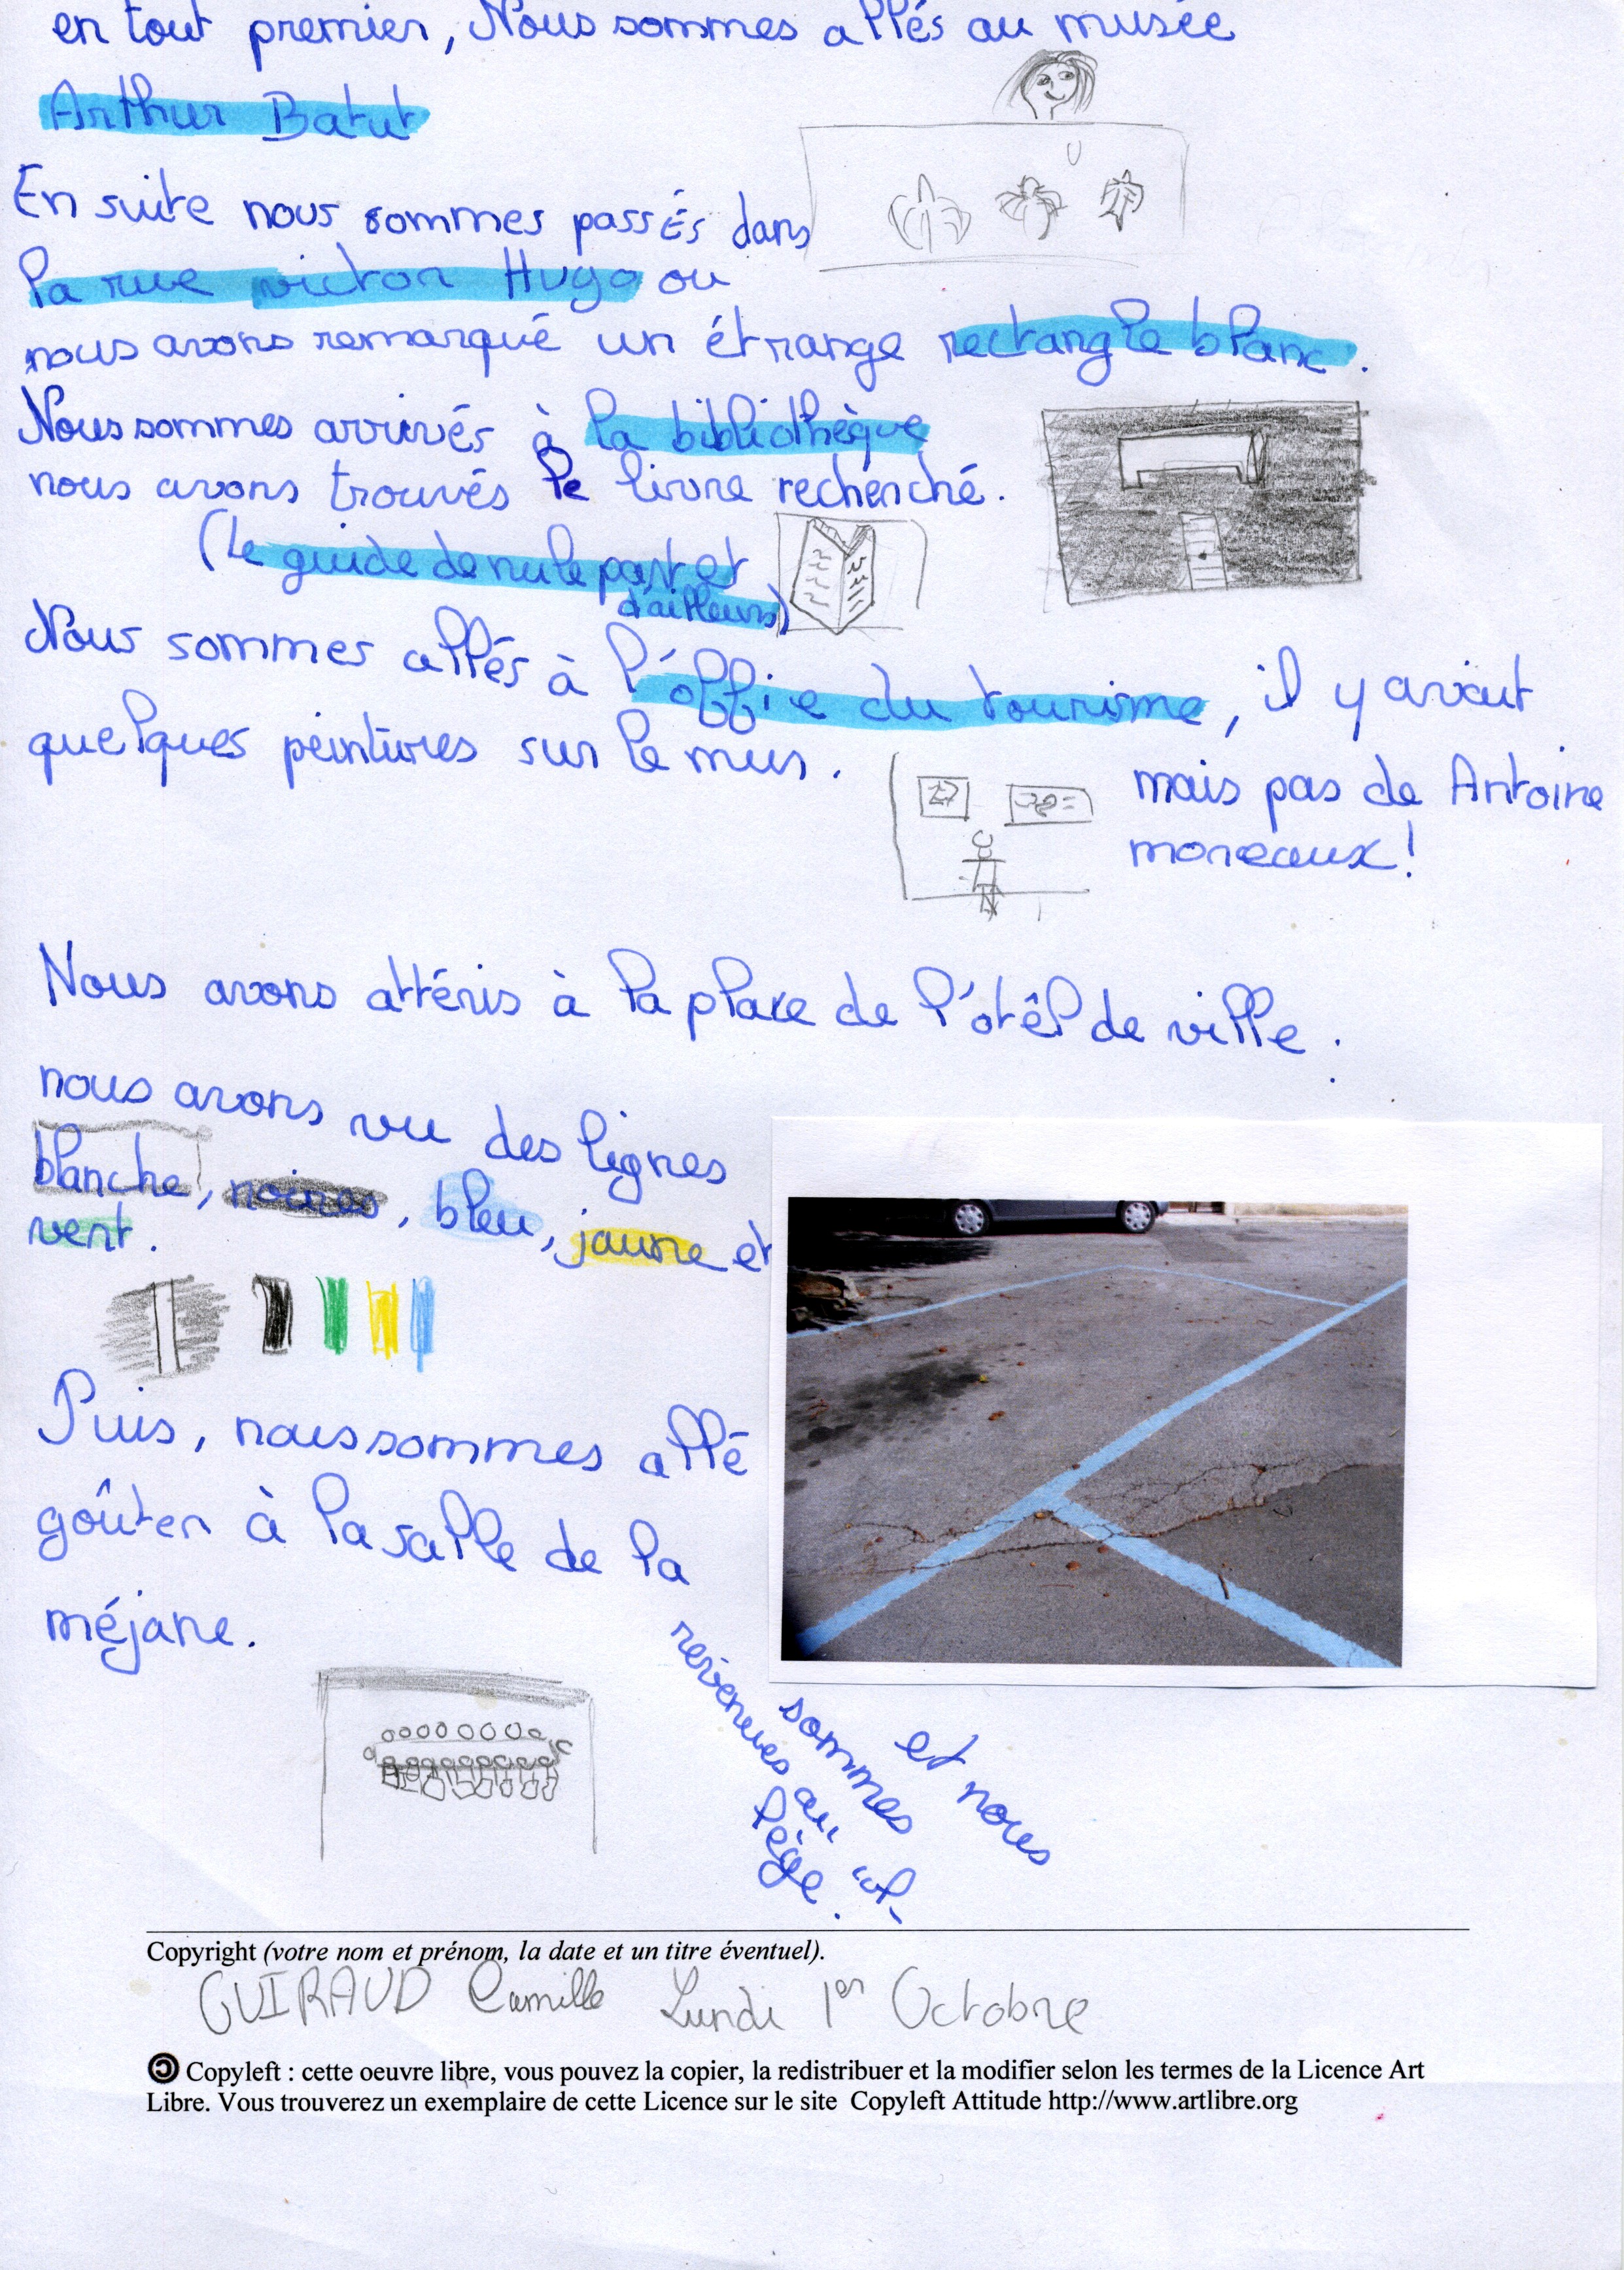 en tout premier, Nous sommes allés au musée
Arthur Batut
En suite nous sommes passÉs dans
la rue victor Hugo ou
nous avons remarqué un étrange rectangle blanc.
Nous sommes arrivés à la bibliothèque
nous avons trouvés le livre recherché.
(Le guide de nule part et
d'ailleurs)
Nous sommes allés à l'offie du tourisme, il y avait
quelques peintures sur le mur.
mais pas de Antoine
moreaux!
Nous avons attéris à la place de l'otêl de ville.
nous avons vu des lignes
blanche, noires, bleu, jaune et
vert.
Puis, nous sommes allé
goûter à la salle de la
méjane.
et nous
sommes
revenues au
col-
lège.
Copyright (votre nom et prénom, la date et un titre éventuel).
GUIRAUD Camille Lundi 1er Octobre
Copyleft : cette oeuvre libre, vous pouvez la copier, la redistribuer et la modifier selon les termes de la Licence Art
Libre. Vous trouverez un exemplaire de cette Licence sur le site Copyleft Attitude http://www.artlibre.org